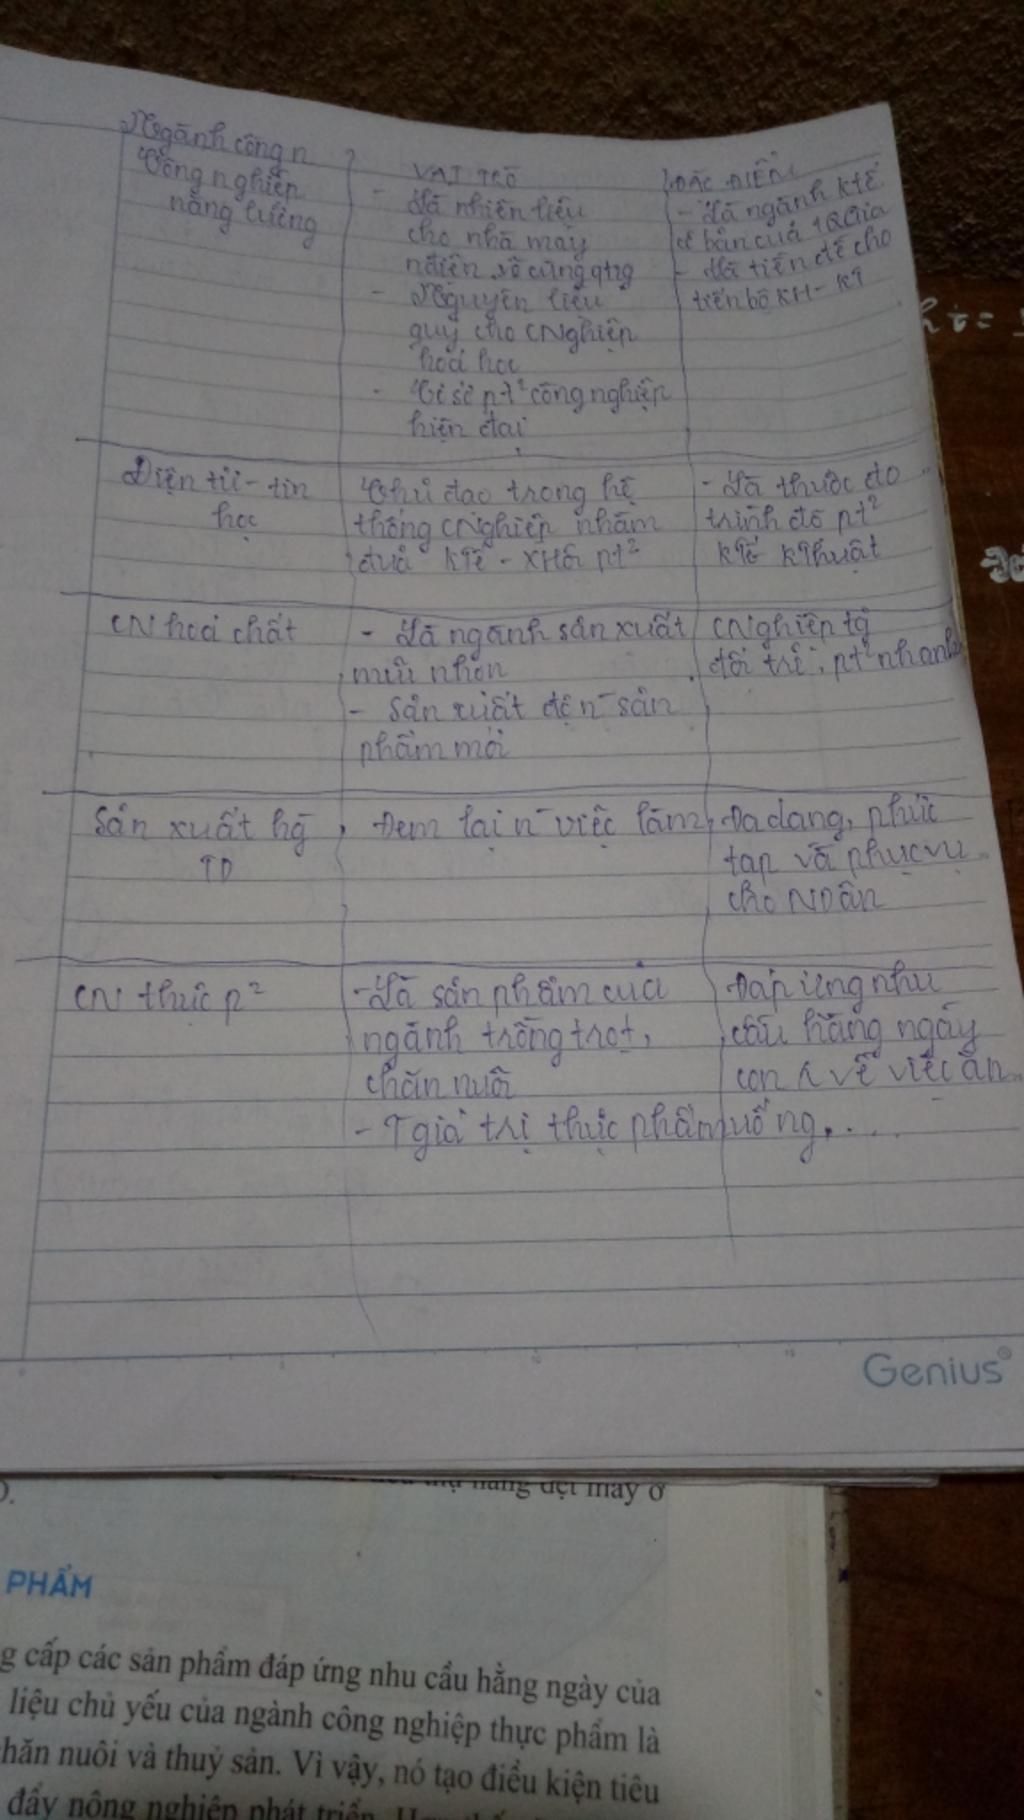 Ngành công n
Công nghiệp
năng lượng
VAI TRÒ
- Là nhiên liệu
cho nhà máy
nđiện, vô cùng qtrg
- Nguyên liệu
quý cho CNghiệp
hoá học
- Cơ sở pt² công nghiệp
hiện đại
ĐẶC ĐIỂM
- Là ngành ktế
cơ bản của 1 QGia
- Là tiền đề cho
tiến bộ KH - KT
Điện tử - tin
học
Chủ đạo trong hệ
thống CNghiệp nhằm
đưa KTế - XHội pt²
- Là thước đo
trình độ pt²
KTế KThuật
CN hoá chất
- Là ngành sản xuất
mũi nhọn
- Sản xuất đc n sản
phẩm mới
CNghiệp tg
đối trẻ, pt² nhanh
Sản xuất hg
TD
Đem lại n việc làm
Đa dạng, phức
tạp và phục vụ
cho NDân
CN thực p²
- Là sản phẩm của
ngành trồng trọt,
chăn nuôi
- T giá trị thực phẩm
Đáp ứng nhu
cầu hàng ngày
con về việc ăn
uống, ...
Genius
hàng dệt may ở
PHẨM
g cấp các sản phẩm đáp ứng nhu cầu hằng ngày của
liệu chủ yếu của ngành công nghiệp thực phẩm là
hăn nuôi và thuỷ sản. Vì vậy, nó tạo điều kiện tiêu
đẩy nông nghiệp phát triển.